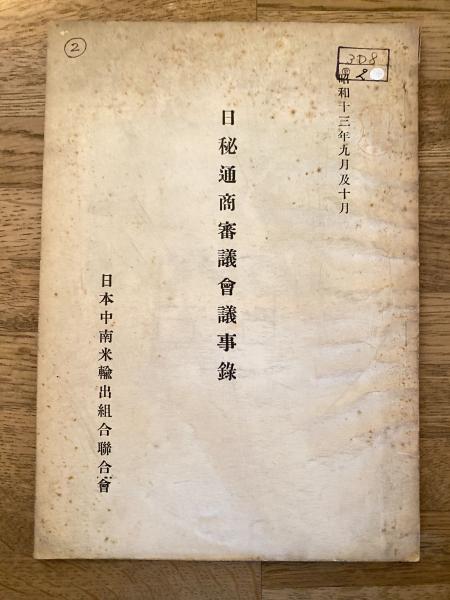 昭和十三年九月及十月
日秘通商審議會議事錄
日本中南米輸出組合聯合會
②
308